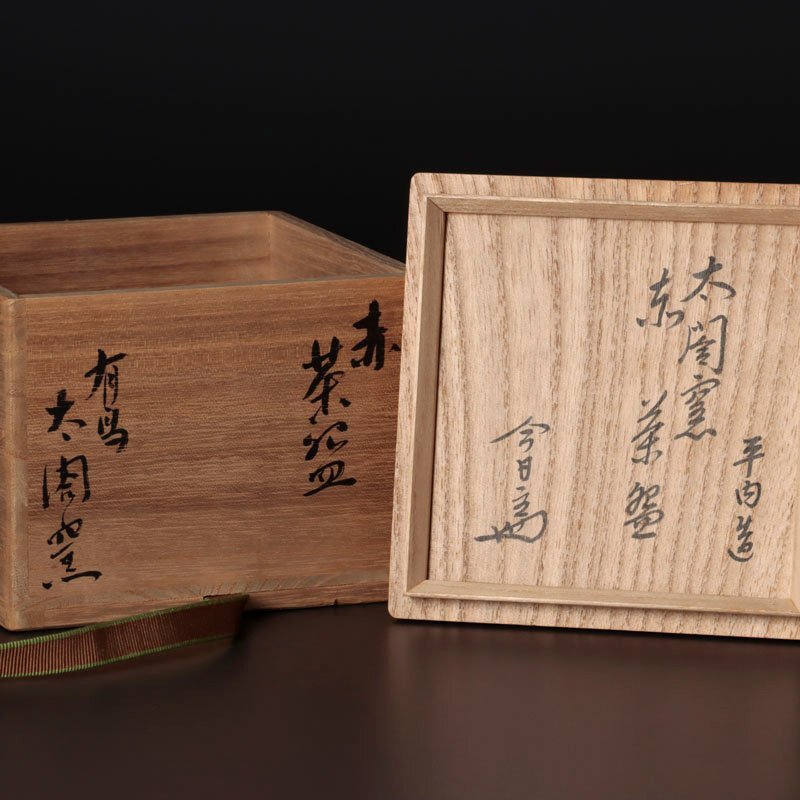 赤
茶盌
有馬
太閤窯
太閤窯
赤
茶盌
平内造
今日庵